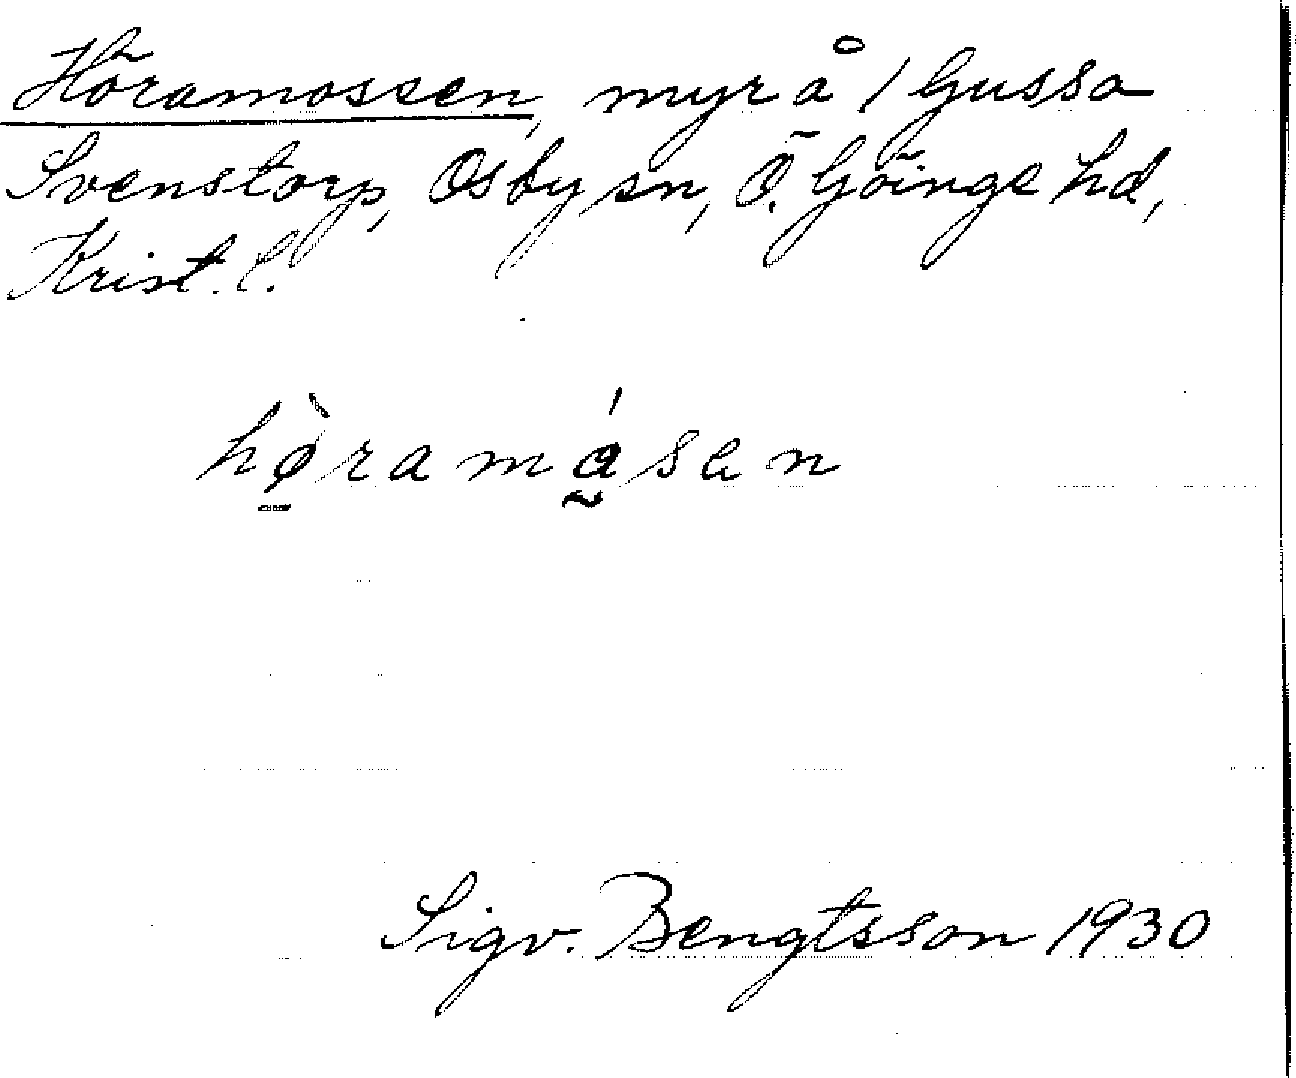 Höramossen, myr å 1 Gussa
Svenstorp, Osby sn, Ö. Göinge hd,
Krist. l.
hø̀ramásen
Sigv. Bengtsson 1930